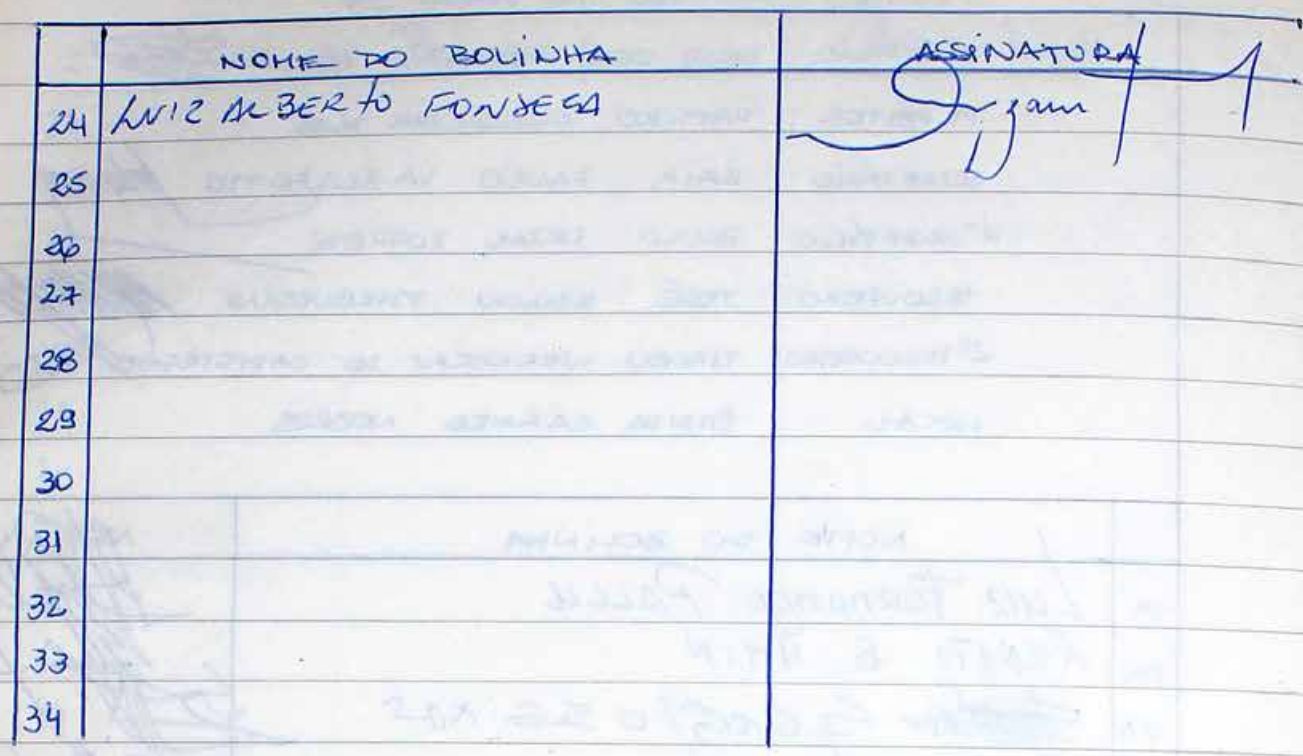 NOME DO BOLINHA ASSINATURA
24 LUIZ ALBERTO FONSECA
25
26
27
28
29
30
31
32
33
34